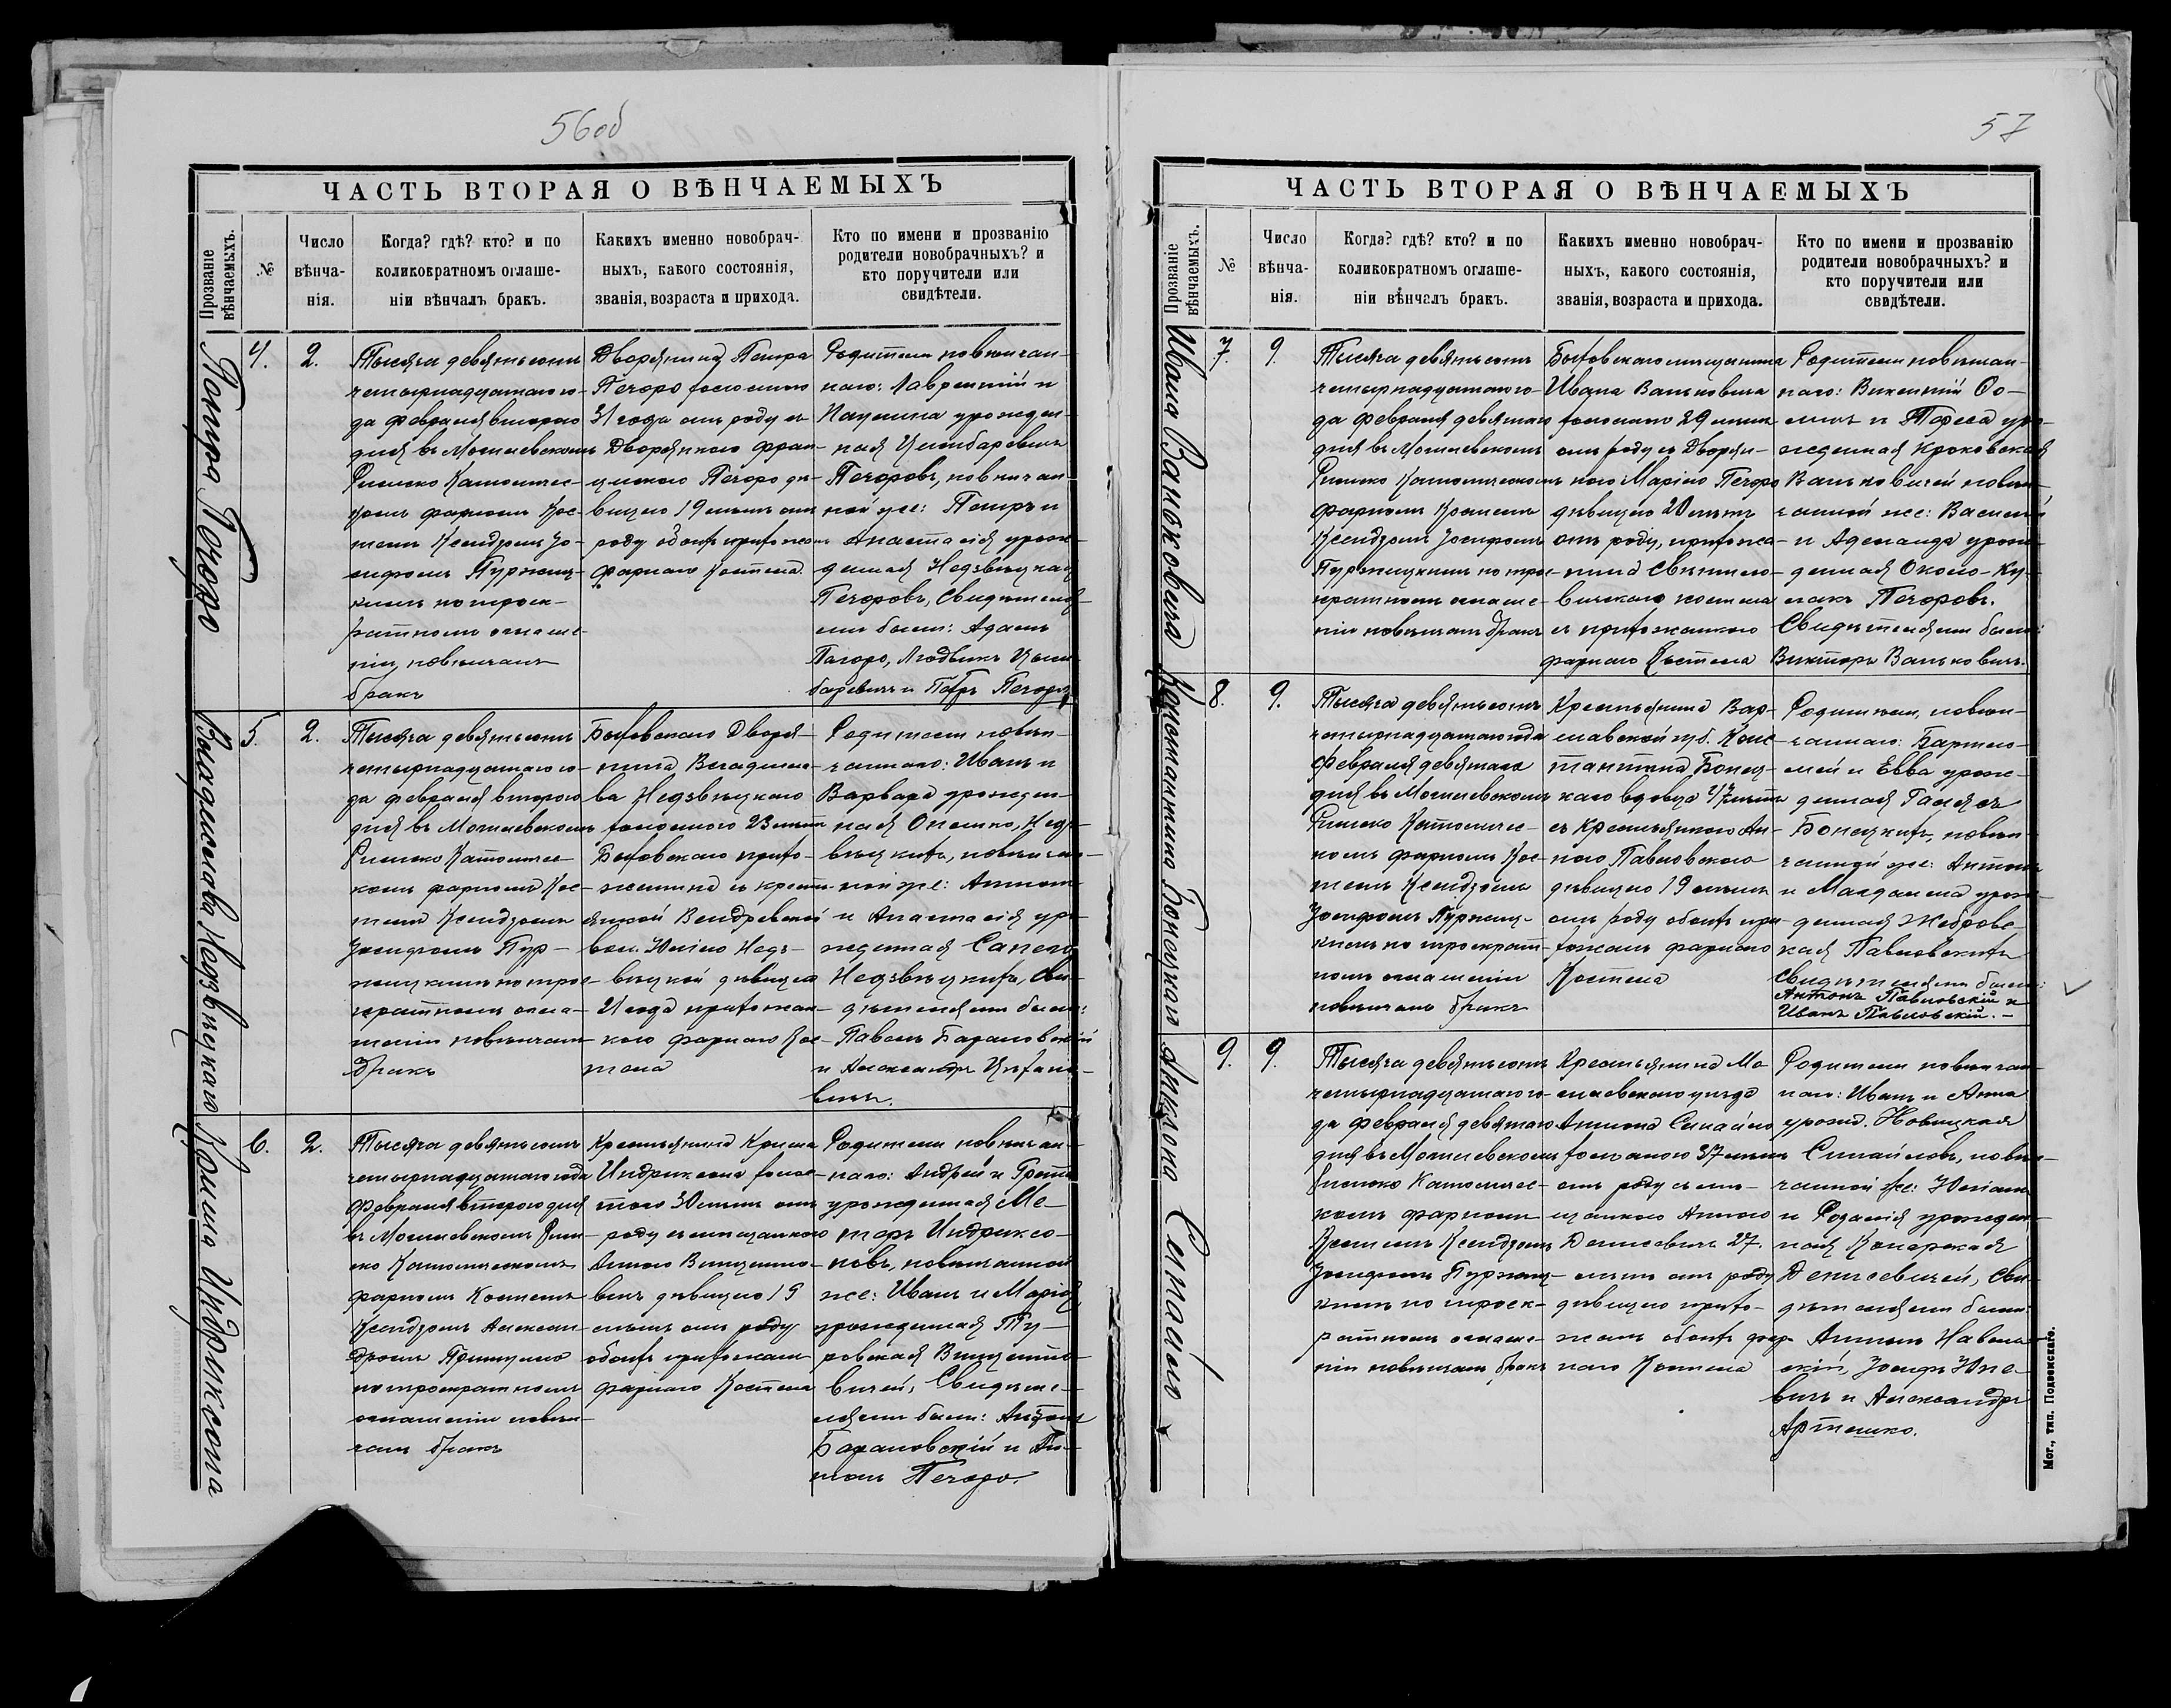 56об
ЧАСТЬ ВТОРАЯ О ВѢНЧАЕМЫХЪ
Прозваніе вѣнчаемыхъ.
№
Число вѣнча-нія.
Когда? гдѣ? кто? и по
коликократномъ оглаше-
ніи вѣнчалъ бракъ.
Каихъ именно новобрач-
ныхъ, какого состоянія,
званія, возраста и прихода.
Кто по имени и прозванію
родители новобрачныхъ? и
кто поручители или
свидѣтели.
Петра Печоро
4.
2.
Тысяча девятьсотъ
четырнадцатаго го-
да февраля второго
дня въ Могилевскомъ
Римско Католичес-
комъ фарномъ Кос-
телѣ Ксендзомъ Іо-
сифомъ Пуржиц-
кимъ по трек-
ратномъ оглаше-
ніи, повѣнчанъ
бракъ
Дворянина Петра
Печоро холостого
31 года отъ роду съ
Дворянкою Фран-
цискою Печоро дѣ-
вицею 19 лѣтъ отъ
роду обоихъ прихожанъ
фарнаго Костела.
Родители повѣнчан-
наго: Лаврентій и
Паулина урожден-
ная Цимбаревичъ
Печоровъ, повѣнчан-
ной же: Петръ и
Анастасія урож-
денная Недзвѣцкая
Печоровъ, Свидѣтеля-
ми были: Адамъ
Печоро, Людвикъ Цим-
баревичъ и Петръ Печоро
Владислава Недзвѣцкаго
5.
2.
Тысяча девятьсотъ
четырнадцатаго го-
да февраля второго
дня въ Могилевскомъ
Римско Католичес-
комъ фарномъ Кос-
телѣ Ксендзомъ
Іосифомъ Пур-
жицкимъ по трое-
кратномъ огла-
шеніи повѣнчанъ
бракъ
Быховскаго Дворя-
нина Владисла-
ва Недзвѣцкаго
холостого 23 лѣтъ
Быховскаго прихо-
жанина съ кресть-
янкой Вендревской
вол. Юліею Недз-
вѣцкой дѣвицею
21 года прихожан-
кою фарнаго Кос-
тела
Родители повѣн-
чаннаго: Иванъ и
Варвара урожден-
ная Онешко, Недз-
вѣцкихъ, повѣнчан-
ной же: Антонъ
и Анастасія ур-
жденная Сапего
Недзвѣцкихъ, Сви-
дѣтелями были:
Павелъ Барановскій
и Александръ Цѣхано-
вичъ.
Криша Индриксона
6.
2.
Тысяча девятьсотъ
четырнадцатаго года
Февраля второго дня
въ Могилевскомъ Рим-
ско Католическомъ
фарномъ Костелѣ
Ксендзомъ Алексан-
дромъ
по троекратномъ
оглашеніи повѣн-
чанъ бракъ
Крестьянина Криша
Индриксона холос-
того 30 лѣтъ отъ
роду съ мѣщанкою
Анною Винценто-
вичъ дѣвицею 19
лѣтъ отъ роду
обоихъ прихожанъ
фарнаго Костела
Родители повѣнчан-
наго: Андрей и Грета
урожденная Ме-
торъ Индриксо-
новъ, повѣнчанной
же: Иванъ и Марія
урожденная Ту-
ровская Винценто-
вичей, Свидѣте-
лями были: Антонъ
Барановскій и Ан-
тонъ Печоро.
57
ЧАСТЬ ВТОРАЯ О ВѢНЧАЕМЫХЪ
Прозваніе вѣнчаемыхъ.
№
Число вѣнча-нія.
Когда? гдѣ? кто? и по
коликократномъ оглаше-
ніи вѣнчалъ бракъ.
Какихъ именно новобрач-
ныхъ, какого состоянія,
званія, возраста и прихода.
Кто по имени и прозванію
родители новобрачныхъ? и
кто поручители или
свидѣтели.
Ивана Ваньковича
7.
9.
Тысяча девятьсотъ
четырнадцатаго го-
да февраля девятаго
дня въ Могилевскомъ
Римско Католическомъ
фарномъ Костелѣ
Ксендзомъ Іосифомъ
Пуржицкимъ по трое-
кратномъ оглаше-
ніи повѣнчанъ бракъ
Быховскаго мѣщанина
Ивана Ваньковича
холостого 29 лѣтъ
отъ роду съ Дворян-
кою Маріею Печоро
дѣвицею 20 лѣтъ
отъ роду, прихожа-
нина
костела
съ прихожанкою
фарнаго Костела
Родители повѣнчан-
наго: Викентій Фо-
и урo-
жденная Кроковская
Ваньковичей повѣн-
чанной же: Василій
и Аделаида урож-
денная Около-Ку-
лакъ Печоровъ.
Свидѣтелями были:
Викторъ Ваньковичъ.
Константина Бонецкаго
8.
9.
Тысяча девятьсотъ
четырнадцатаго года
февраля девятаго
дня въ Могилевскомъ
Римско Католичес-
комъ фарномъ Кос-
телѣ Ксендзомъ
Іосифомъ Пуржиц-
кимъ по троекрат-
номъ оглашеніи
повѣнчанъ бракъ
Крестьянина Вар-
шавской губ. Конс-
тантина Бонец-
каго вдовца лѣтъ
съ Крестьянкою Ан-
ною Павловскою
дѣвицею 19 лѣтъ
отъ роду обоихъ при-
хожанъ фарнаго
Костела
Родители, повѣн-
чаннаго: Бартло-
мей и Евва урож-
денная
Бонецкихъ, повѣн-
чанной же: Антонъ
и Магдалена урож-
денная Жебровс-
кая Павловскихъ
Свидѣтелями были:
Антонъ Павловскій и
Иванъ Павловскій. –
Антона Синайло
9.
9.
Тысяча девятьсотъ
четырнадцатаго го-
да февраля девятаго
дня въ Могилевскомъ
Римско Католичес-
комъ фарномъ
Костелѣ Ксендзомъ
Іосифомъ Пуржиц-
кимъ по троек-
ратномъ оглаше-
ніи повѣнчанъ бракъ
Крестьянина Мо-
гилевскаго уѣзда
Антона Синайло
холостого 37 лѣтъ
отъ роду съ мѣ-
щанкою Анною
Денисевичъ 27.
лѣтъ отъ роду
дѣвицею прихо-
жанъ обоихъ фар-
наго Костела
Родители повѣнчан-
наго: Иванъ и Анна
урожд. Новицкая
Синайловъ, повѣн-
чанной же: Юліанъ
и Розалія урожден-
ная
Денисевичей, Сви-
дѣтелями были:
Антонъ
скій, Іосифъ Юне-
вичъ и Александръ
Артешко.
Мог., тип. Подземскаго.